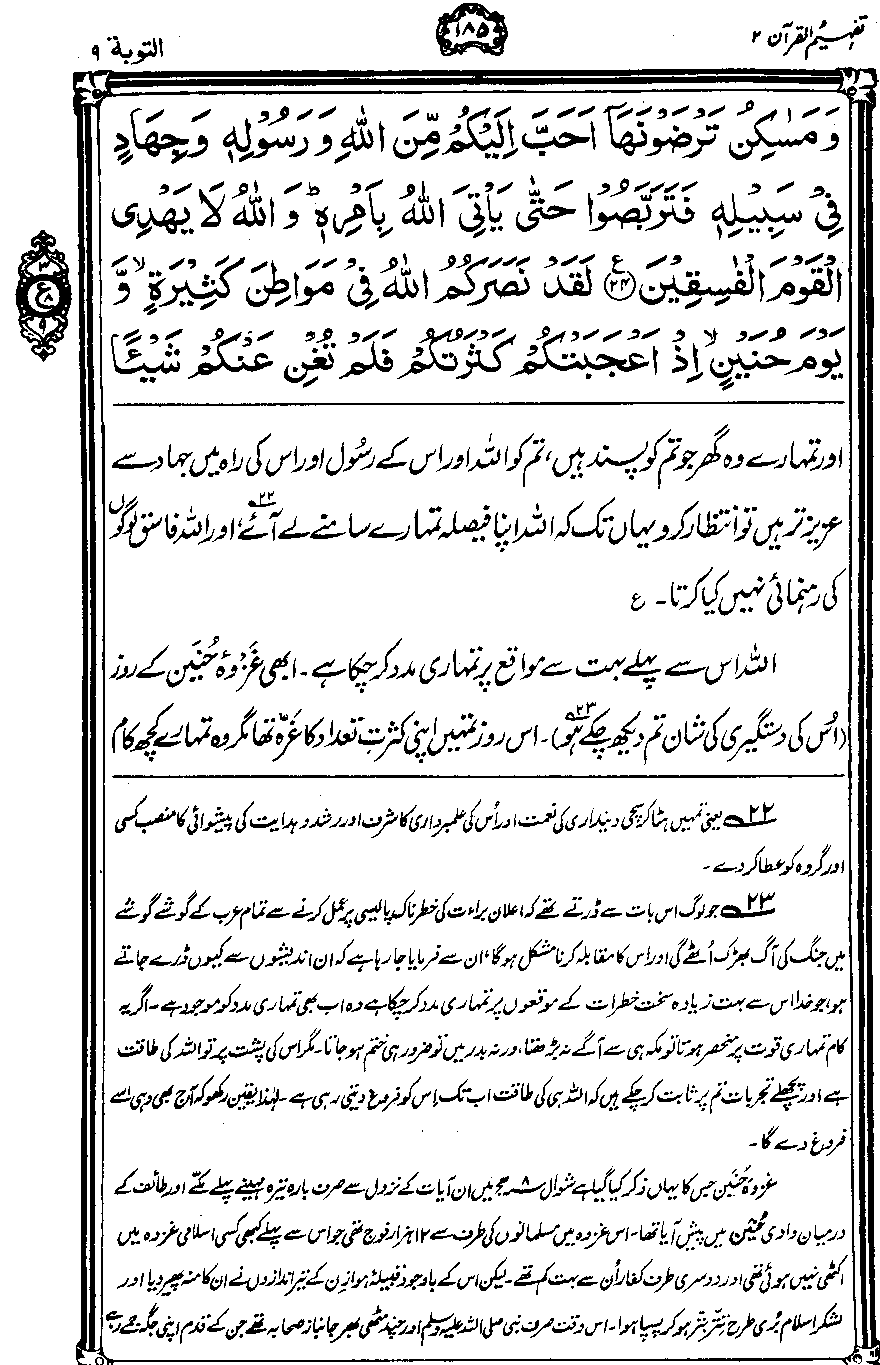 تفہیم القرآن ۲
۱۸۵
التوبة ۹
وَ مَسٰكِنُ تَرْضَوْنَهَاۤ اَحَبَّ اِلَيْكُمْ مِّنَ اللّٰهِ وَ رَسُوْلِهٖ وَ جِهَادٍ
فِيْ سَبِيْلِهٖ فَتَرَبَّصُوْا حَتّٰى يَاْتِيَ اللّٰهُ بِاَمْرِهٖ ؕ وَ اللّٰهُ لَا يَهْدِى
الْقَوْمَ الْفٰسِقِيْنَ ﴿۲۴﴾ ع لَقَدْ نَصَرَكُمُ اللّٰهُ فِيْ مَوَاطِنَ كَثِيْرَةٍ ۙ وَّ
يَوْمَ حُنَيْنٍ ۙ اِذْ اَعْجَبَتْكُمْ كَثْرَتُكُمْ فَلَمْ تُغْنِ عَنْكُمْ شَيْـًٔا
اور تمہارے وہ گھر جو تم کو پسند ہیں، تم کو اللہ اور اس کے رسُول اور اس کی راہ میں جہاد سے
عزیز تر ہیں تو انتظار کرو یہاں تک کہ اللہ اپنا فیصلہ تمہارے سامنے لے آئے۲۲، اور اللہ فاسق لوگوں
کی رہنمائی نہیں کیا کرتا۔ ع
اللہ اس سے پہلے بہت سے مواقع پر تمہاری مدد کر چکا ہے۔ ابھی غزوۂ حُنَین کے روز
(اُس کی دستگیری کی شان تم دیکھ چکے ہو۲۳)۔ اس روز تمہیں اپنی کثرتِ تعداد کا غرّہ تھا مگر وہ تمہارے کچھ کام
۲۲ یعنی تمہیں ہٹا کر سچی دینداری کی نعمت اور اُس کی علمبرداری کا شرف اور رشد و ہدایت کی پیشوائی کا منصب کسی
اور گروہ کو عطا کر دے۔
۲۳ جو لوگ اس بات سے ڈرتے تھے کہ اعلان براءت کی خطرناک پالیسی پر عمل کرنے سے تمام عرب کے گوشے گوشے
میں جنگ کی آگ بھڑک اُٹھے گی اور اس کا مقابلہ کرنا مشکل ہوگا، ان سے فرمایا جا رہا ہے کہ ان اندیشوں سے کیوں ڈرے جاتے
ہو، جو خدا اس سے بہت زیادہ سخت خطرات کے موقعوں پر تمہاری مدد کر چکا ہے وہ اب بھی تمہاری مدد کو موجود ہے۔ اگر یہ
کام تمہاری قوت پر منحصر ہوتا تو مکہ ہی سے آگے نہ بڑھتا، ورنہ بدر میں تو ضرور ہی ختم ہو جاتا۔ مگر اس کی پشت پر تو اللہ کی طاقت
ہے اور پچھلے تجربات تم پر ثابت کر چکے ہیں کہ اللہ ہی کی طاقت اب تک اِس کو فروغ دیتی رہی ہے۔ لہٰذا یقین رکھو کہ آج بھی وہی اسے
فروغ دے گا۔
غزوۂ حُنَین جس کا یہاں ذکر کیا گیا ہے شوال ۸ھ میں ان آیات کے نزول سے صرف بارہ تیرہ مہینے پہلے مکے اور طائف کے
درمیان وادی حُنَین میں پیش آیا تھا۔ اس غزوہ میں مسلمانوں کی طرف سے ۱۲ ہزار فوج تھی جو اس سے پہلے کبھی کسی اسلامی غزوہ میں
اکٹھی نہیں ہوئی تھی اور دوسری طرف کفار اُن سے بہت کم تھے۔ لیکن اس کے باوجود قبیلۂ ہوازن کے تیر اندازوں نے ان کا منہ پھیر دیا اور
لشکر اسلام بُری طرح تتر بتر ہو کر پسپا ہوا۔ اس وقت صرف نبی صلی اللہ علیہ وسلم اور چند مٹھی بھر جانباز صحابہ تھے جن کے قدم اپنی جگہ جمے رہے